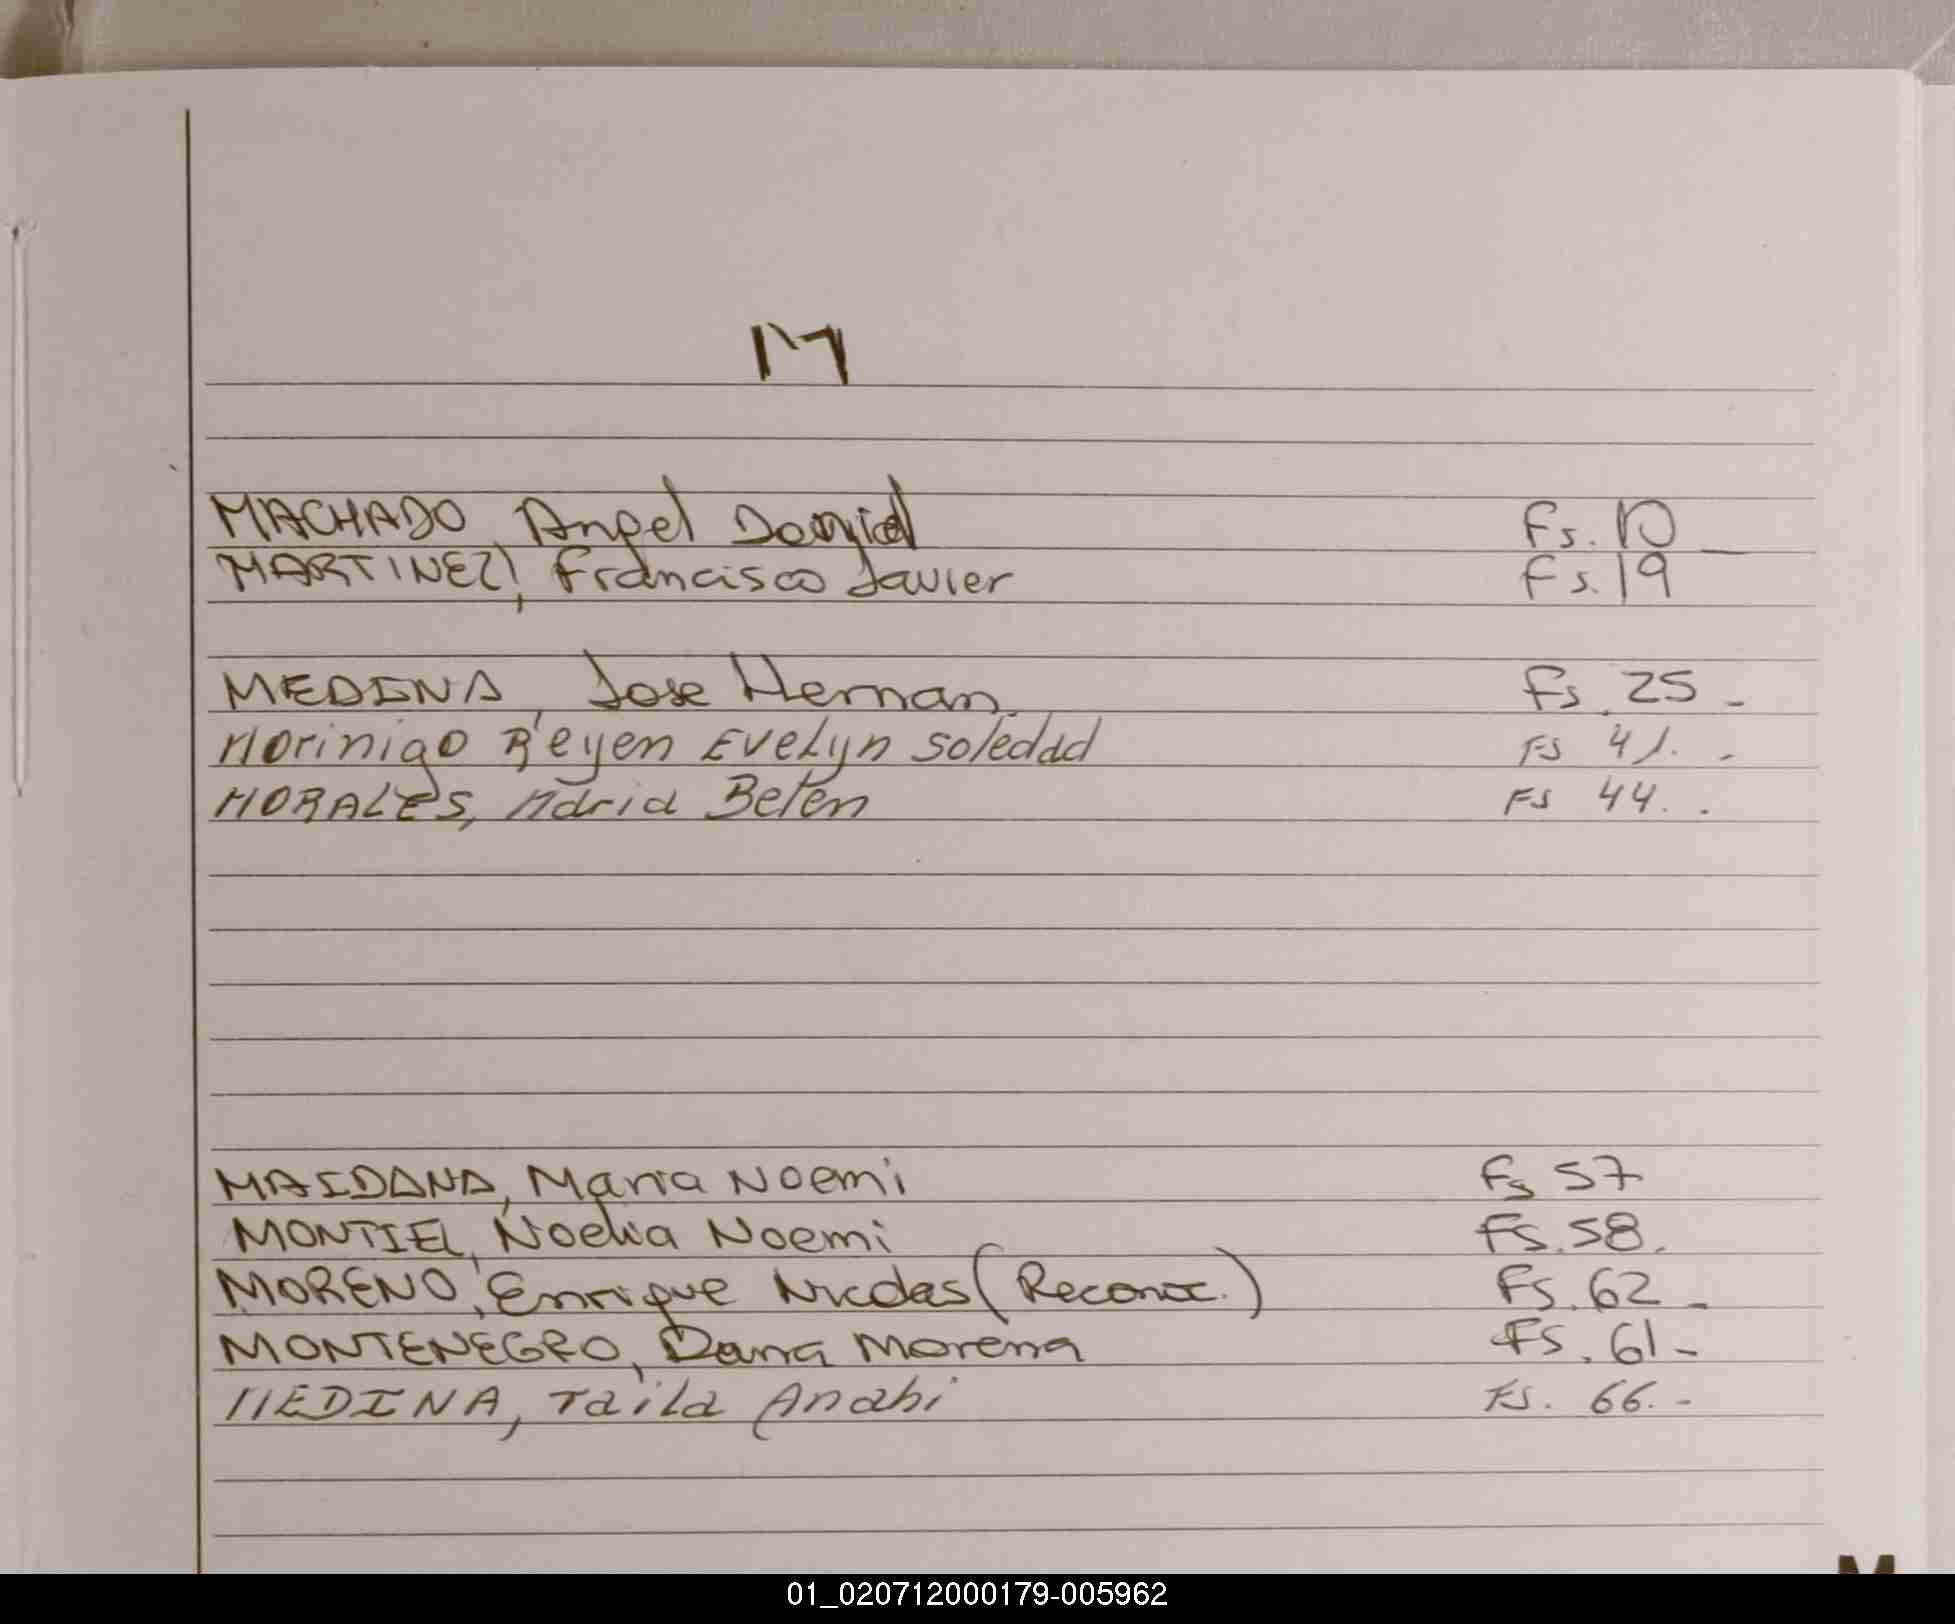 M
MACHADO, Angel Daniel Fs. 10 _
MARTINEZ, Francisco Javier Fs. 19
MEDINA, Jose Hernan Fs. 25 -
Morinigo Reyen Evelyn Soledad FS 41. -
MORALES, Maria Belen FS 44. .
MAIDANA, Maria Noemi Fs 57
MONTIEL, Noelia Noemi FS. 58.
MORENO, Enrique Nicolas (Reconoc.) FS. 62 -
MONTENEGRO, Dana Morena FS. 61 -
MEDINA, Taila Anahi FS. 66. -
M
01_020712000179-005962